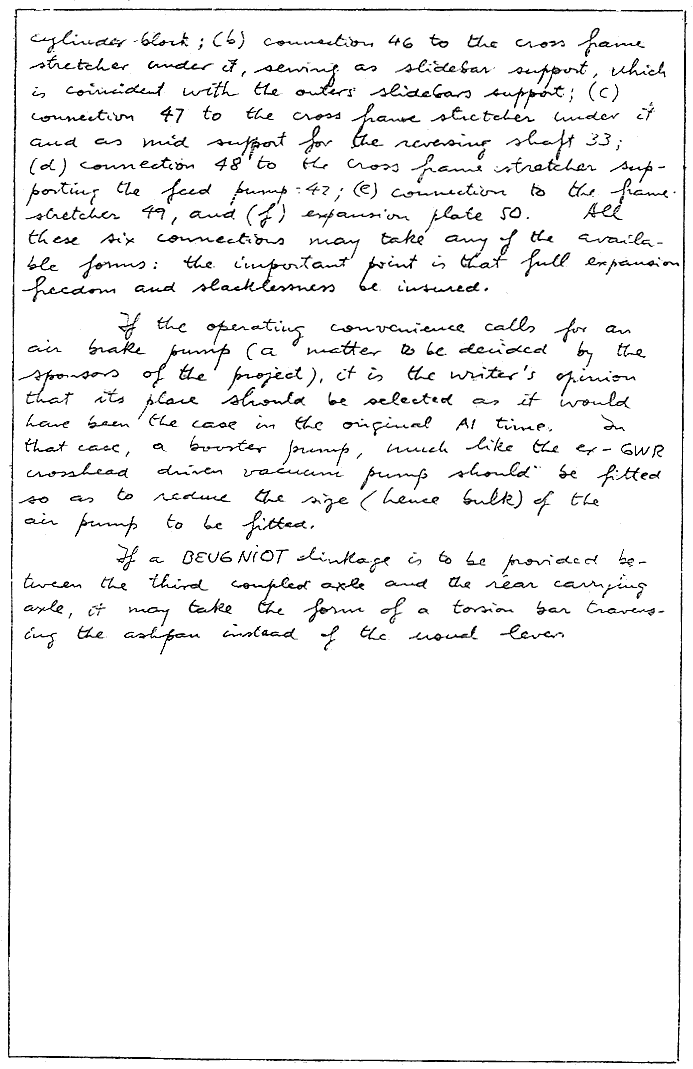 cylinder block; (b) connection 46 to the cross frame
stretcher under it, serving as slidebar support, which
is coincident with the outers slidebars support; (c)
connection 47 to the cross frame stretcher under it
and as mid support for the reversing shaft 33;
(d) connection 48 to the cross frame stretcher sup-
porting the feed pump 42; (e) connection to the frame
stretcher 49, and (f) expansion plate 50. All
these six connections may take any of the availa-
ble forms: the important point is that full expansion
freedom and slacklessness be insured.
If the operating convenience calls for an
air brake pump (a matter to be decided by the
sponsors of the project), it is the writer's opinion
that its place should be selected as it would
have been the case in the original A1 time. In
that case, a booster pump, much like the ex-GWR
crosshead driven vacuum pump should be fitted
so as to reduce the size (hence bulk) of the
air pump to be fitted.
If a BEUGNIOT linkage is to be provided be-
tween the third coupled axle and the rear carrying
axle, it may take the form of a torsion bar travers-
ing the ashpan instead of the usual lever